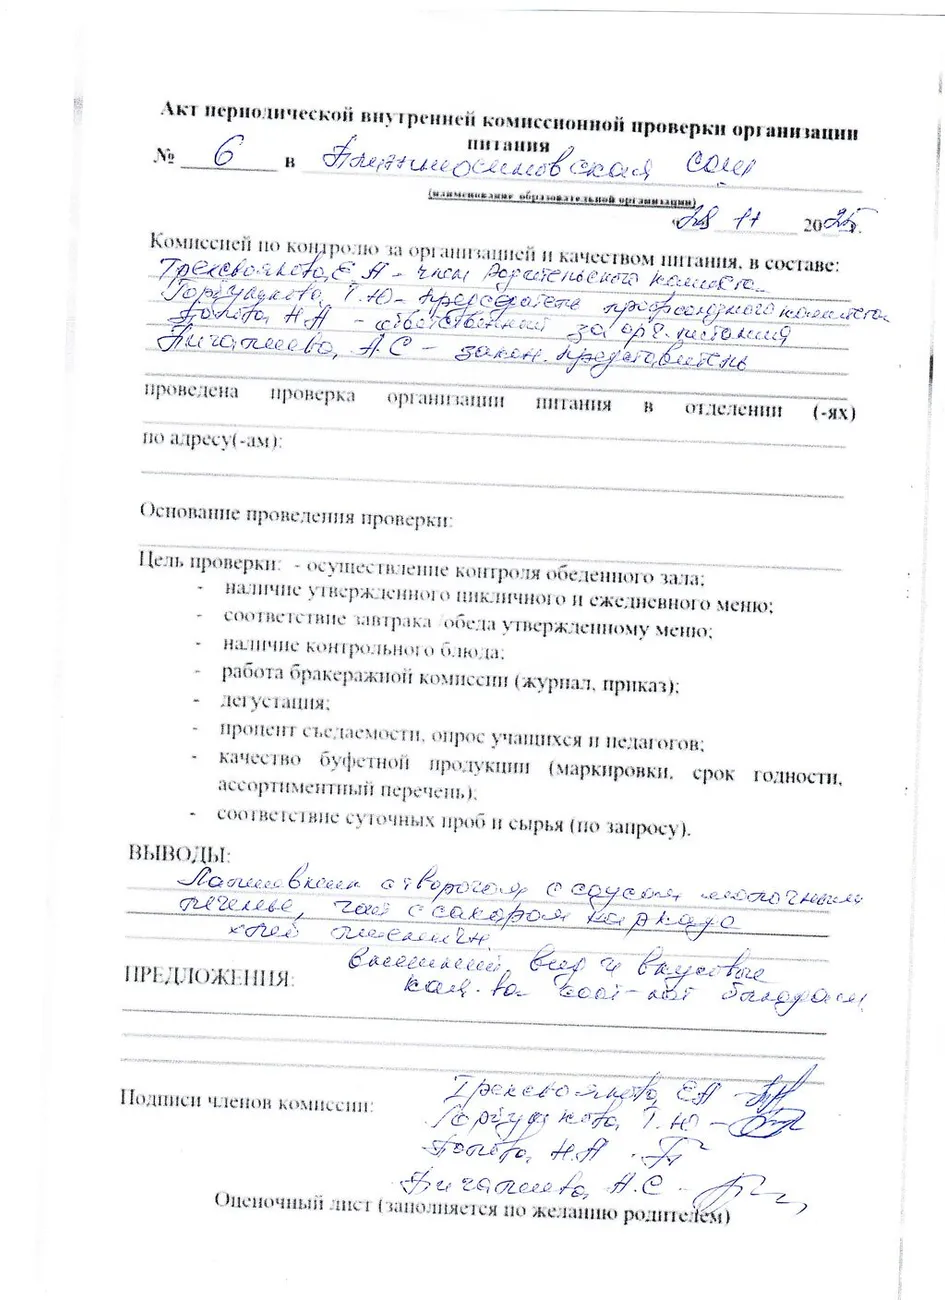 Акт периодической внутренней комиссионной проверки организации
питания
№ 6 в СОШ
(наименование образовательной организации)
«28» 11 2025г.
Комиссией по контролю за организацией и качеством питания, в составе:
Е.А – член родительского комитета
Горбунова Т.Ю – председатель профсоюзного комитета
Попова Н.А – ответственный за орг. питания
А.С – закон. представитель
проведена проверка организации питания в отделении (-ях)
по адресу(-ам):
Основание проведения проверки:
Цель проверки: - осуществление контроля обеденного зала;
- наличие утвержденного цикличного и ежедневного меню;
- соответствие завтрака /обеда утвержденному меню;
- наличие контрольного блюда;
- работа бракеражной комиссии (журнал, приказ);
- дегустация;
- процент съедаемости, опрос учащихся и педагогов;
- качество буфетной продукции (маркировки, срок годности,
ассортиментный перечень);
- соответствие суточных проб и сырья (по запросу).
ВЫВОДЫ:
Лапшевник с творогом с соусом молочным
печенье, чай с сахаром каркаде
хлеб пшеничн
внешний вид и вкусовые
ПРЕДЛОЖЕНИЯ:
кач-ва соот-ют блюдам
Подписи членов комиссии:
Е.А
Горбунова Т.Ю –
Попова Н.А
А.С –
Оценочный лист (заполняется по желанию родителем)